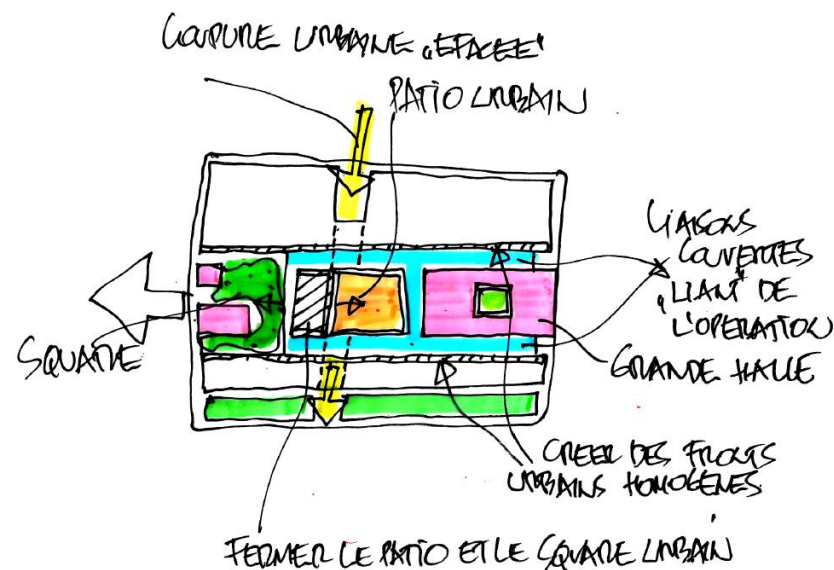 COUPURE URBAINE „EFACEE"
PATIO URBAIN
LIAISONS
COUVERTES
„LIANT" DE
L'OPERATION
GRANDE HALLE
SQUARE
CREER DES FRONTS
URBAINS HOMOGENES
FERMER LE PATIO ET LE SQUARE URBAIN